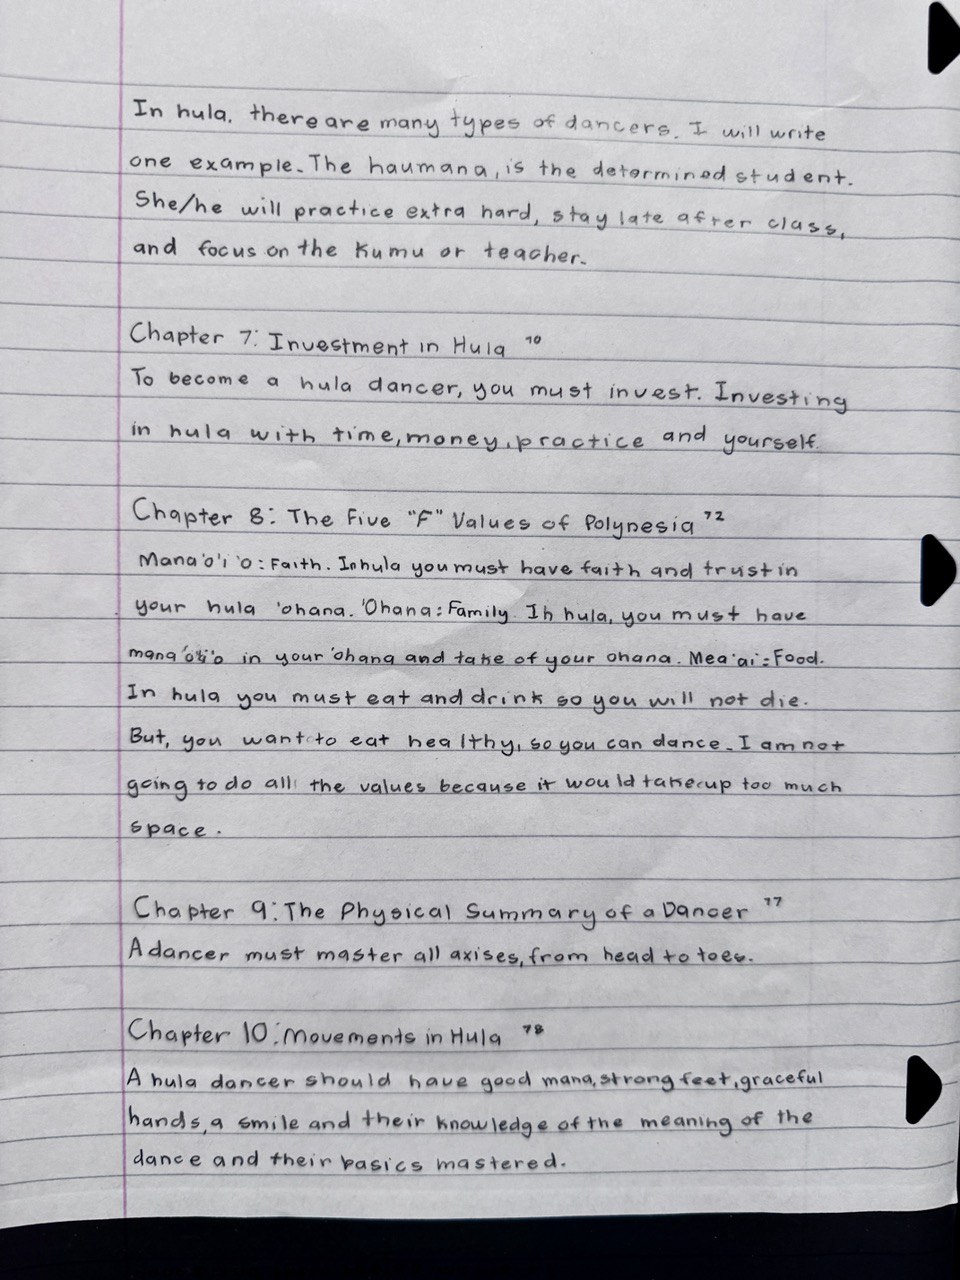 In hula, there are many types of dancers. I will write
one example. The haumana, is the determined student.
She/he will practice extra hard, stay late after class,
and focus on the Kumu or teacher.
Chapter 7: Investment in Hula 70
To become a hula dancer, you must invest. Investing
in hula with time, money, practice and yourself.
Chapter 8: The Five "F" Values of Polynesia 72
Mana'o'i'o: Faith. In hula you must have faith and trust in
your hula 'ohana. 'Ohana: Family. In hula, you must have
mana'o'i'o in your 'ohana and take of your ohana. Mea'ai: Food.
In hula you must eat and drink so you will not die.
But, you want to eat healthy, so you can dance. I am not
going to do all the values because it would take up too much
space.
Chapter 9: The Physical Summary of a Dancer 77
A dancer must master all axises, from head to toes.
Chapter 10: Movements in Hula 78
A hula dancer should have good mana, strong feet, graceful
hands, a smile and their knowledge of the meaning of the
dance and their basics mastered.